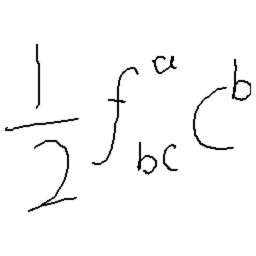 \frac{1}{2} f^{a}_{bc} C^{b}